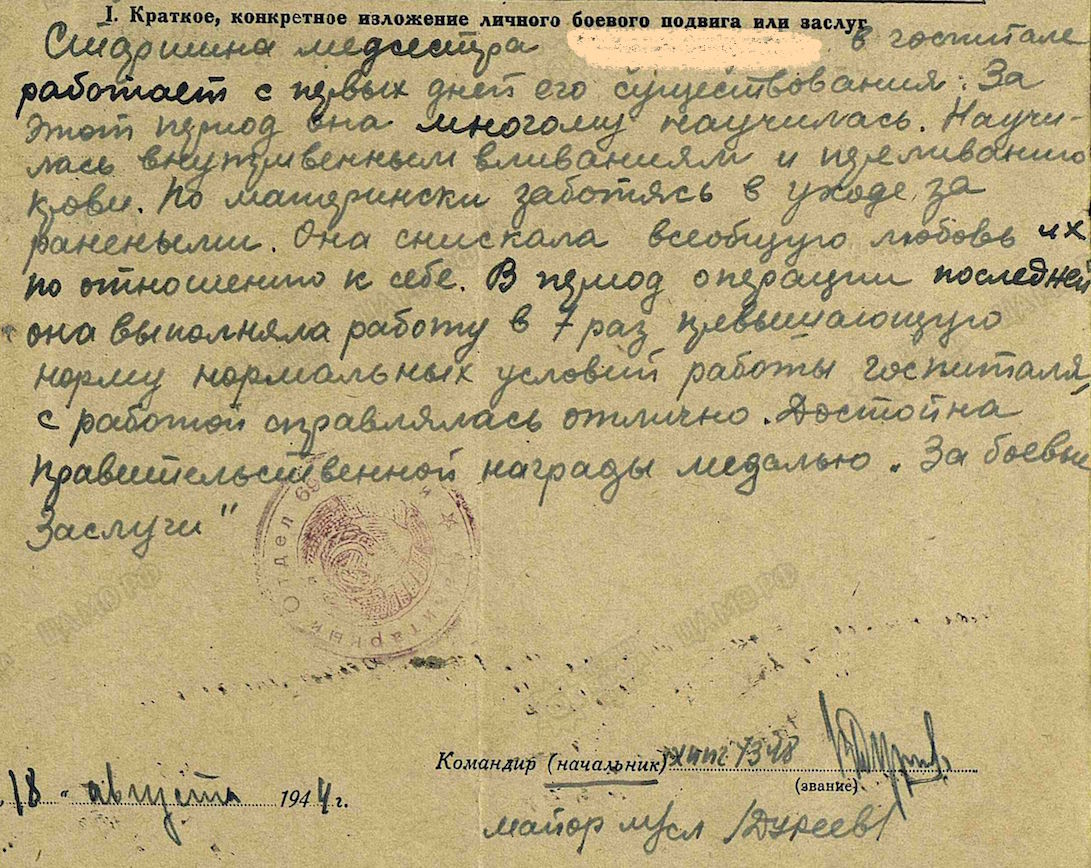 I. Краткое, конкретное изложение личного боевого подвига или заслуг
медсестра в госпитале
работает с первых дней его существования. За
этот период она многому научилась. Научи-
лась внутривенным вливаниям и переливанию
крови. По матерински заботясь в уходе за
ранеными. Она снискала всеобщую любовь их
по отношению к себе. В период операции последней
она выполняла работу в 7 раз превышающую
норму нормальных условий работы госпиталя,
с работой справлялась отлично. Достойна
правительственной награды медалью „За боевые
Заслуги"
Отдел 69
Командир (начальник) хппг 1348
(звание)
18 " августа 1944 г.
майор м/сл /Дуреев/
ЦАМО РФ